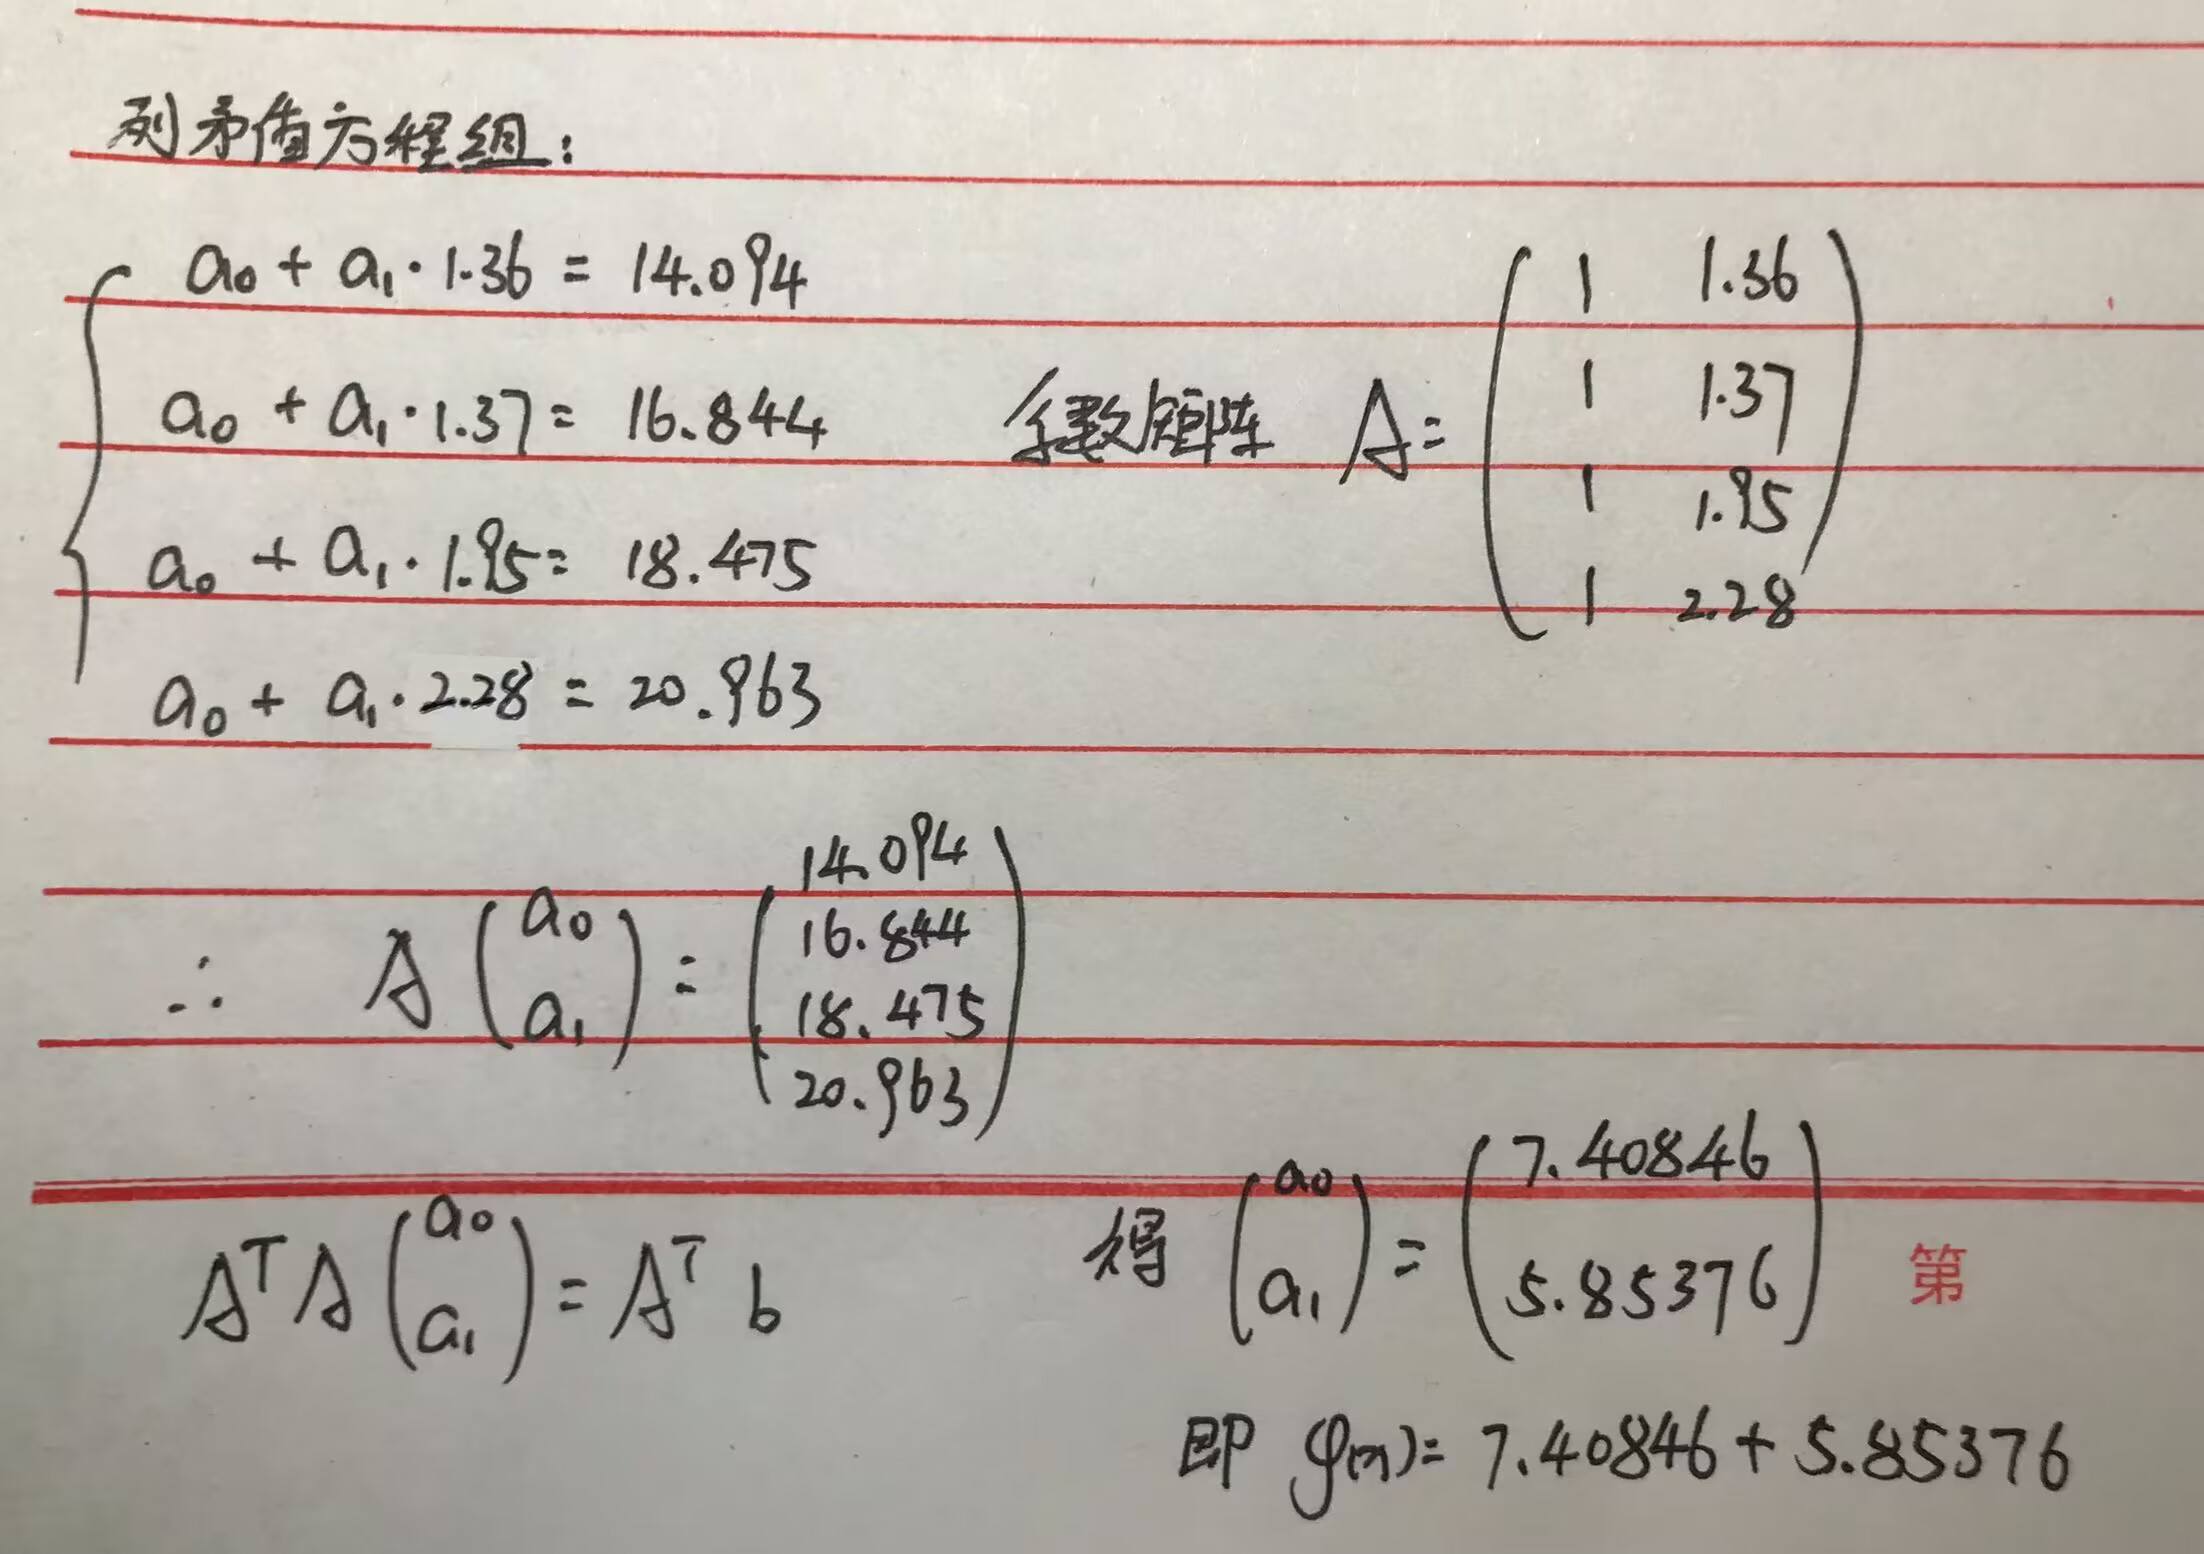 列矛值方程组:
a₀ + a₁·1.36 = 14.094
a₀ + a₁·1.37 = 16.844
a₀ + a₁·1.95 = 18.475
a₀ + a₁·2.28 = 20.963
系数矩阵 A =
1 1.36
1 1.37
1 1.95
1 2.28
∴ A (a₀ a₁) =
14.094
16.844
18.475
20.963
AᵀA (a₀ a₁) = Aᵀ b
得 (a₀ a₁) =
7.40846
5.85376
第
即 φ(x) = 7.40846 + 5.85376